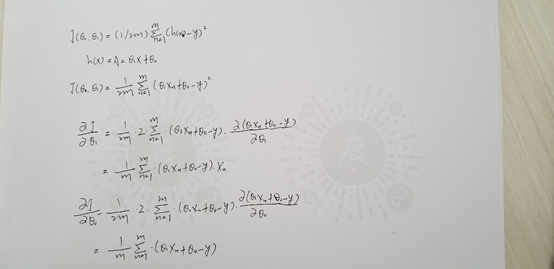 J(θ₀,θ₁) = (1/2m) Σₙ₌₁ᵐ (h(x)-y)²
h(x) = ŷ = θ₁x+θ₀
J(θ₀,θ₁) = 1/2m Σₙ₌₁ᵐ (θ₁xₙ+θ₀-y)²
∂J/∂θ₁ = 1/2m · 2 · Σₙ₌₁ᵐ · (θ₁xₙ+θ₀-y) · ∂(θ₁xₙ+θ₀-y)/∂θ₁
= 1/m Σₙ₌₁ᵐ · (θ₁xₙ+θ₀-y) · xₙ
∂J/∂θ₀ = 1/2m · 2 · Σₙ₌₁ᵐ · (θ₁xₙ+θ₀-y) · ∂(θ₁xₙ+θ₀-y)/∂θ₀
= 1/m Σₙ₌₁ᵐ · (θ₁xₙ+θ₀-y)